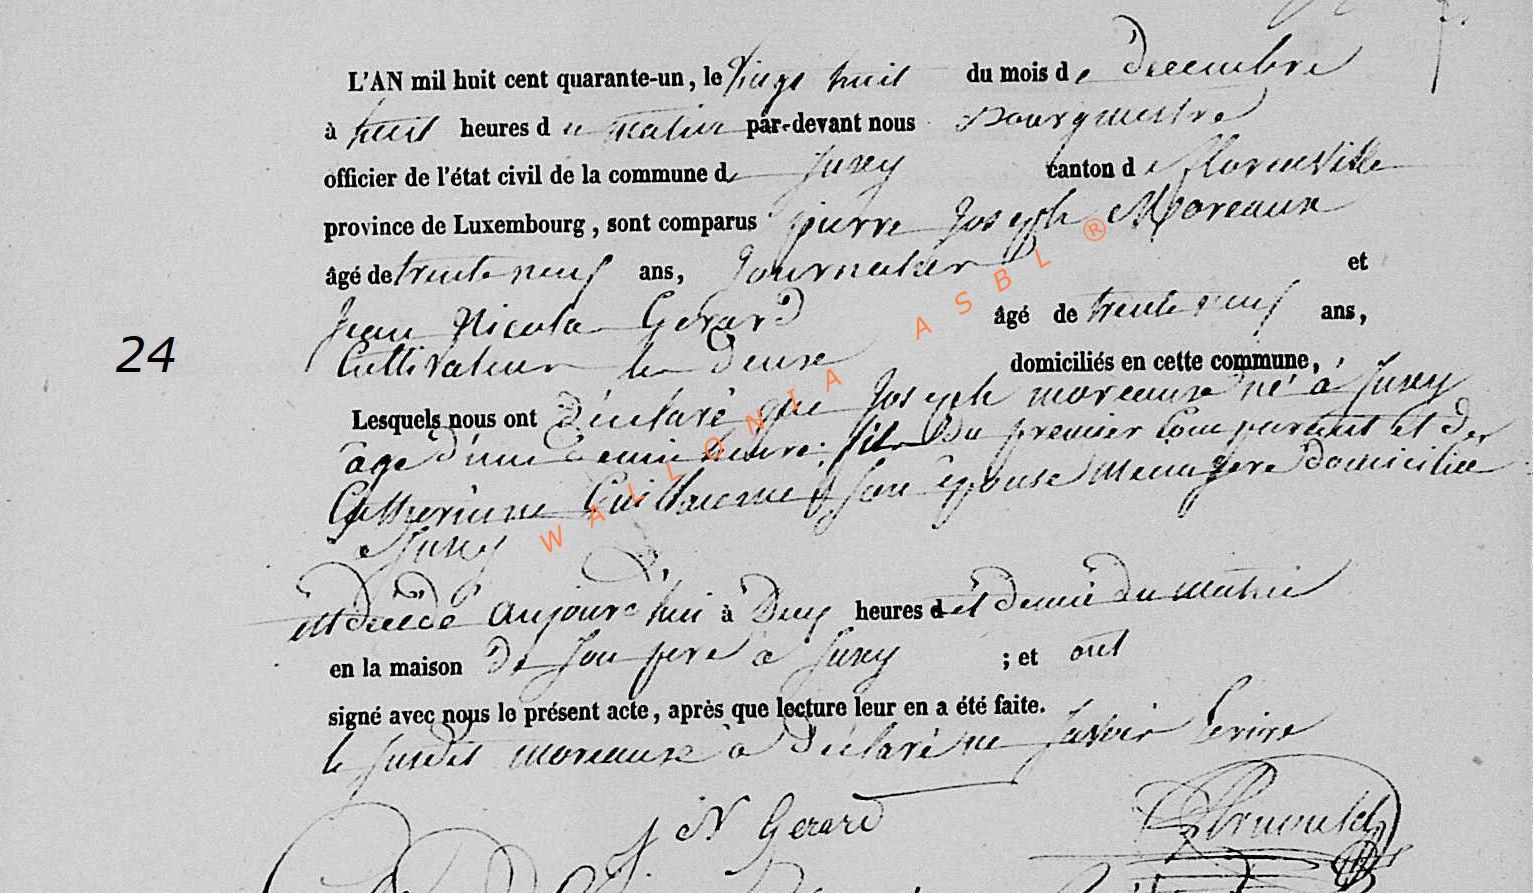 L'AN mil huit cent quarante-un, le vingt huit du mois de decembre
à huit heures du matin par-devant nous Bourgmestre
officier de l'état civil de la commune de Jusey canton de florenville
province de Luxembourg, sont comparus pierre Joseph Moreaux
âgé de trente neuf ans, Journalier et
Jean Nicolas Gerard âgé de trente neuf ans,
Cultivateur les deux domiciliés en cette commune,
Lesquels nous ont déclaré que Joseph moreaux né à Jusey
âgé d'une demie heure fils du premier Comparant et de
Catherinne Guillaume son épouse menagere domiciliée
a Jusey
est décédé aujourd'hui à Deux heures d et demie du matin
en la maison de son pere a Jusey ; et ont
signé avec nous le présent acte, après que lecture leur en a été faite.
le susdit moreaux a déclaré ne savoir Ecrire
24
J N Gerard
Arnould
WALLONIA ASBL ®